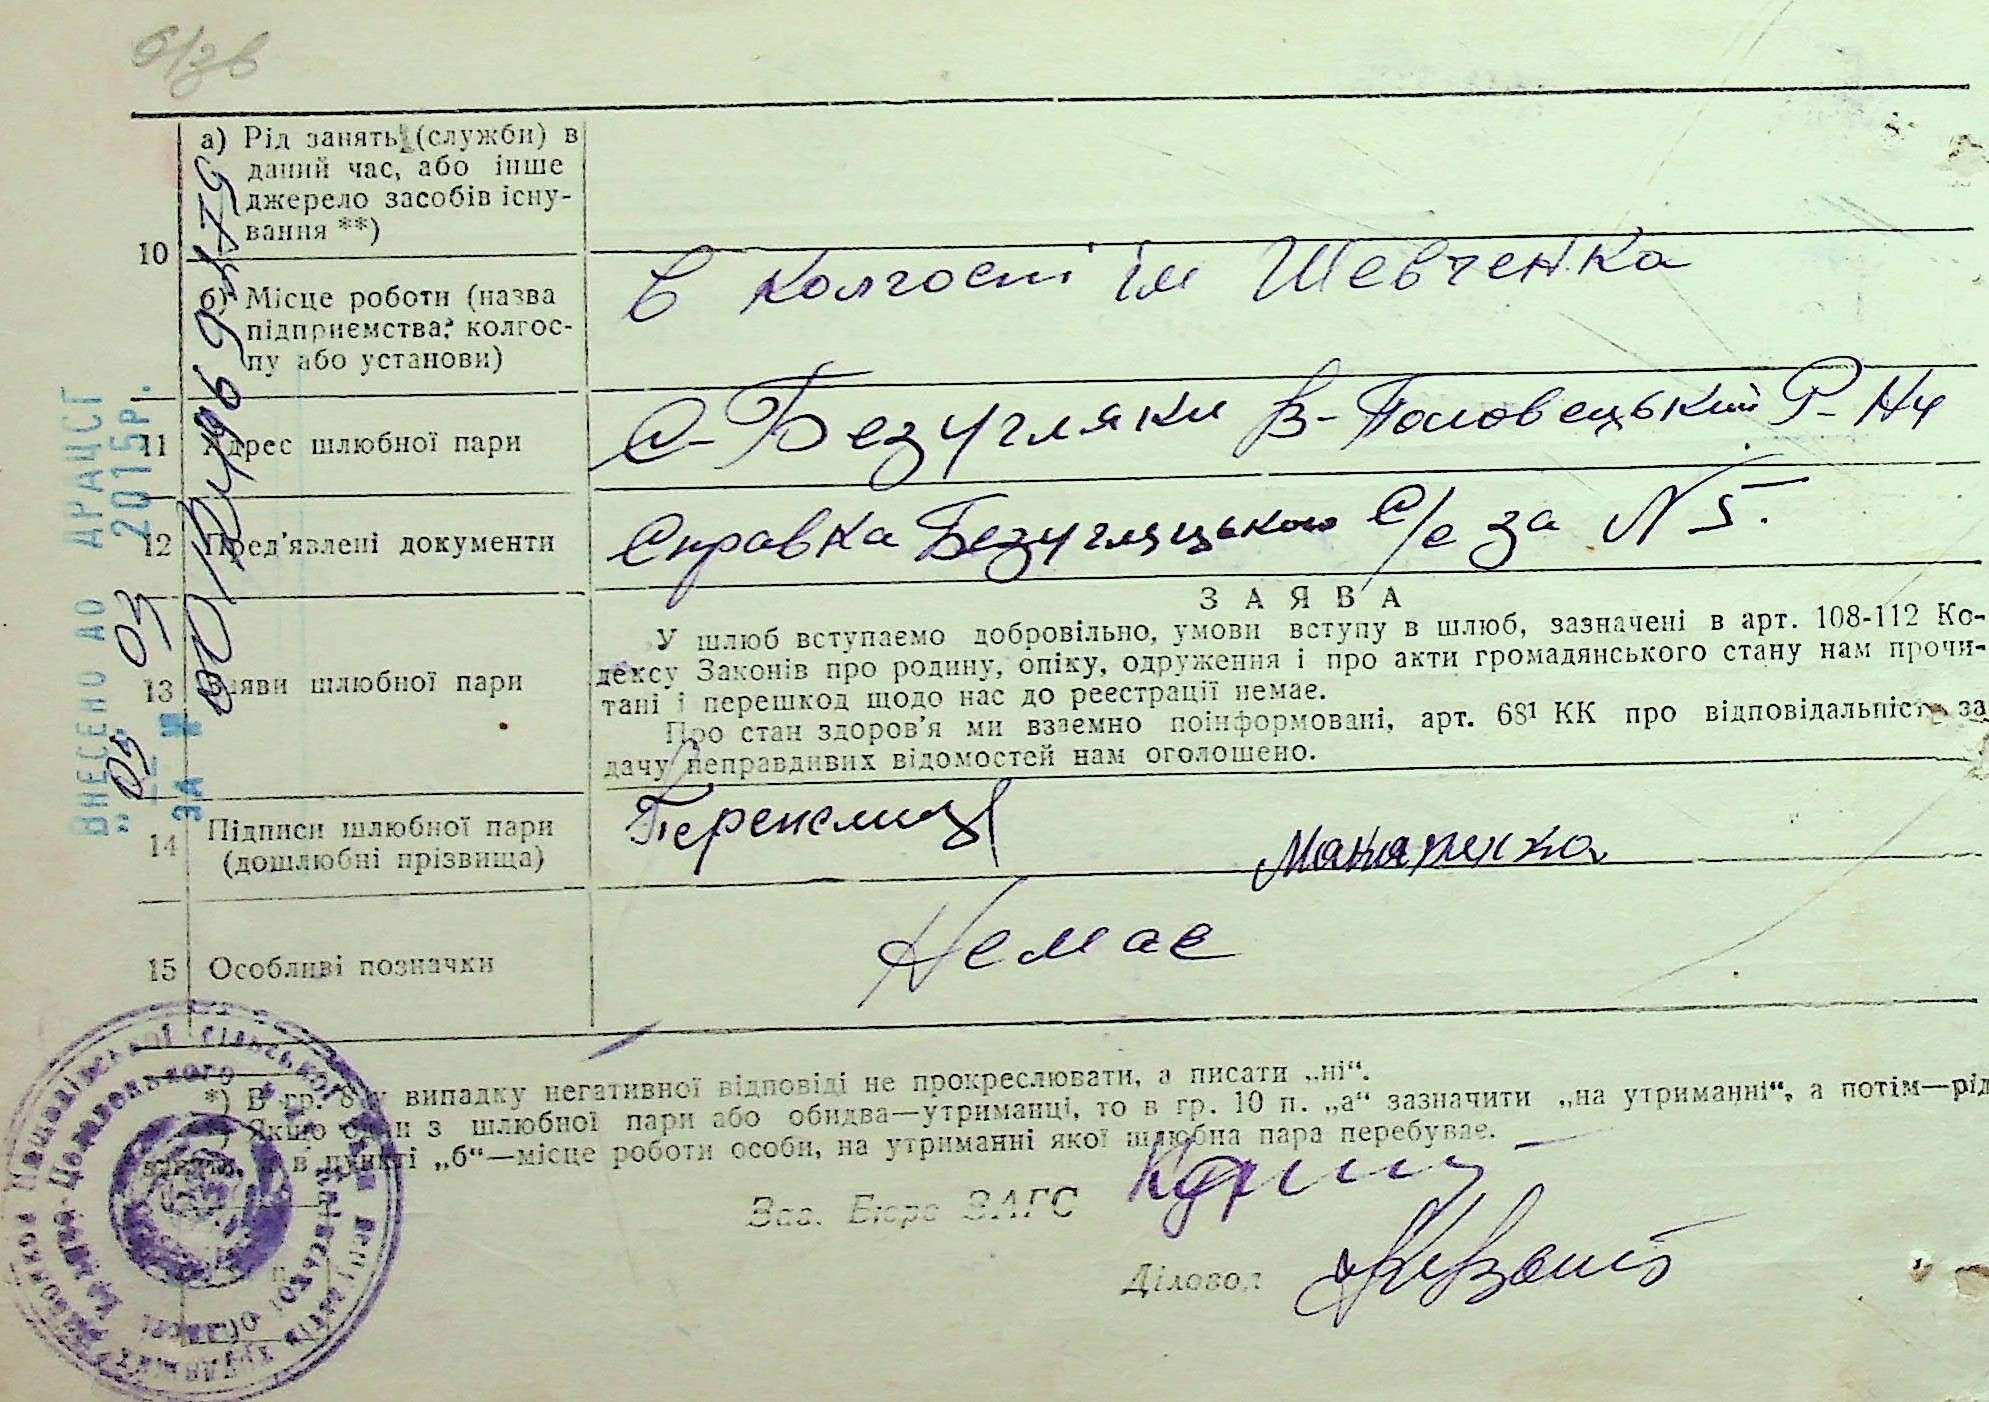 б/зв
а) Рід занять (служби) в
даний час, або інше
джерело засобів існу-
вання **)
10
б) Місце роботи (назва
підприємства, колгос-
пу або установи)
В колгоспі ім Шевченка
11 Адрес шлюбної пари
с-Безугляки В-Половецький Р-Ну
12 Пред'явлені документи
Справка Безугляцького С/с за N 5.
13 Заяви шлюбної пари
ЗАЯВА
У шлюб вступаємо добровільно, умови вступу в шлюб, зазначені в арт. 108-112 Ко-
дексу Законів про родину, опіку, одруження і про акти громадянського стану нам прочи-
тані і перешкод щодо нас до реєстрації немає.
Про стан здоров'я ми взаємно поінформовані, арт. 68¹ КК про відповідальність за
дачу неправдивих відомостей нам оголошено.
14 Підписи шлюбної пари
(дошлюбні прізвища)
15 Особливі позначки
Немає
*) В гр. 8 у випадку негативної відповіді не прокреслювати, а писати „ні“.
Якщо один з шлюбної пари або обидва—утриманці, то в гр. 10 п. „а“ зазначити „на утриманні“, а потім—рід
занять, а в пункті „б“—місце роботи особи, на утриманні якої шлюбна пара перебуває.
Зав. Бюро ЗАГС
Діловод
ВНЕСЕНО ДО ДРАЦСГ
„05“ 03 2015р.
ЗА №